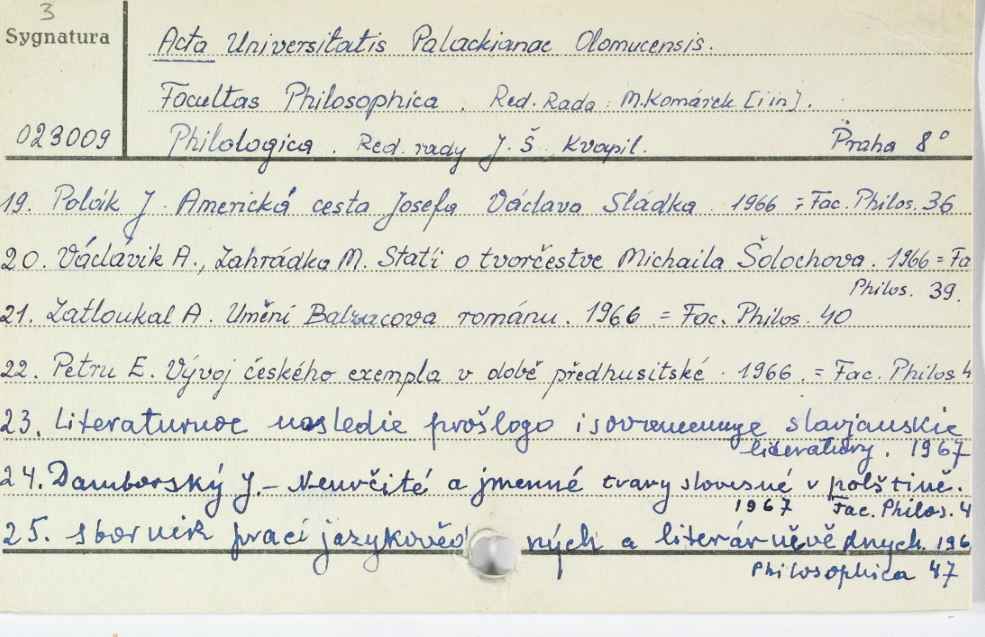 3
Sygnatura
Acta Universitatis Palackianae Olomucensis.
Facultas Philosophica. Red. Rada: M. Komárek [i in].
023009
Philologica. Red. rady J. Š. Kvapil. Praha 8°
19. Polák J. Americká cesta Josefa Václava Sládka. 1966 = Fac. Philos. 36
20. Václavik A., Zahrádka M. Stati o tvorčestve Michaila Šolochova. 1966 = Fa
Philos. 39.
21. Zatloukal A. Umění Balzacova románu. 1966. = Fac. Philos. 40
22. Petru E. Vývoj českého exempla v době předhusitské. 1966. = Fac. Philos 4
23. Literaturnoe nasledie prošlogo i sovremennye slavjanskie
literatury. 1967
24. Damborský J. – Neurčité a jmenné tvary slovesné v polštině.
1967 Fac. Philos. 4
25. Sborník prací jazykověd ných a literárněvědnych. 196
Philosophica 47